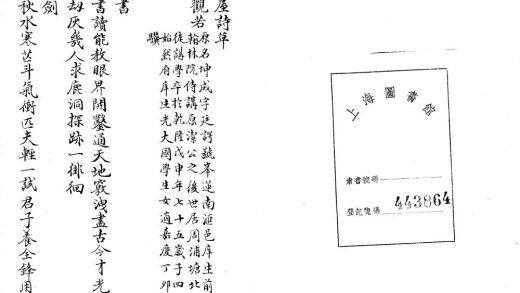 上海圖書館
索書號碼
登記號碼 443864
屋詩草
觀若
原名坤成字廷諤號峯蓮南滙邑庠生前
翰林院侍講原潔公之後世居周浦塘北
後講學卒於乾隆戊申年七十五歲子四
始熊府庠生光大國學生女適嘉慶丁卯
驥
書
書讀能教眼界開鑿通天地竅洩盡古今才光
劫灰幾人求鹿洞探跡一徘徊
劍
秋水寒芒斗氣衝匹夫輕一試君子養全鋒用